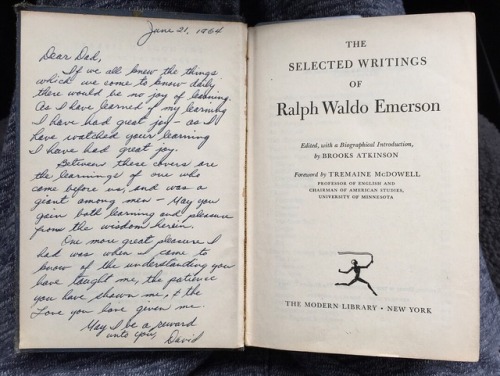 June 21, 1964
Dear Dad,
If we all knew the things
which we come to know daily
there would be no joy of learning.
As I have learned of my learning
I have had great joy - as I
have watched your learning
I have had great joy.
Between these covers are
the learnings of one who
came before us, and was a
giant among men - May you
gain both learning and pleasure
from the wisdom herein.
One more great pleasure I
had was when I came to
know of the understanding you
have taught me, the patience
you have shown me, & the
Love you have given me -
May I be a reward
unto you, David
THE
SELECTED WRITINGS
OF
Ralph Waldo Emerson
Edited, with a Biographical Introduction,
by BROOKS ATKINSON
Foreword by TREMAINE McDOWELL
PROFESSOR OF ENGLISH AND
CHAIRMAN OF AMERICAN STUDIES,
UNIVERSITY OF MINNESOTA
THE MODERN LIBRARY · NEW YORK